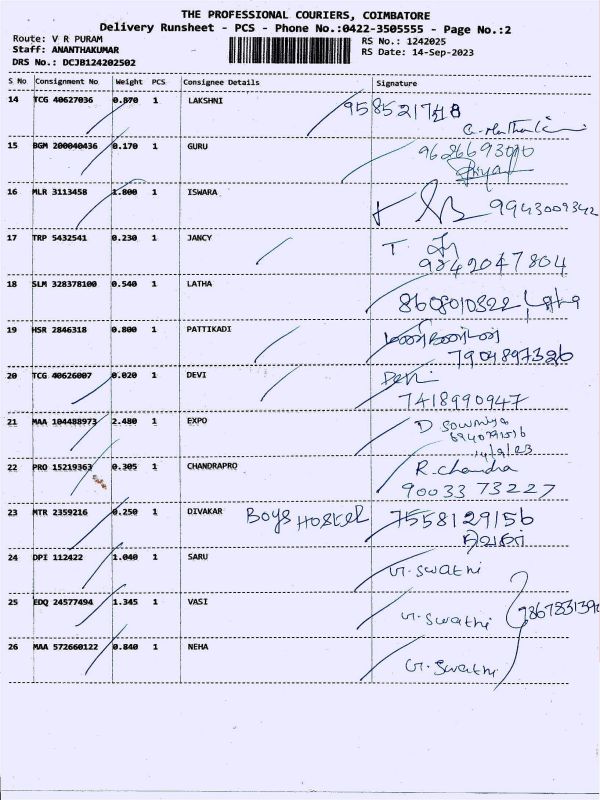 THE PROFESSIONAL COURIERS, COIMBATORE
Delivery Runsheet - PCS - Phone No.:0422-3505555 - Page No.:2
Route: V R PURAM RS No.: 1242025
Staff: ANANTHAKUMAR RS Date: 14-Sep-2023
DRS No.: DCJB124202502
S No Consignment No Weight PCS Consignee Details Signature
14 TCG 40627036 0.870 1 LAKSHNI 9585217418
15 BGM 200040436 0.170 1 GURU
16 MLR 3113458 1.800 1 ISWARA 9943009342
17 TRP 5432541 0.230 1 JANCY T.
9842047804
18 SLM 328378100 0.540 1 LATHA 8608010322 Latha
19 HSR 2846318 0.800 1 PATTIKADI
7904897326
20 TCG 40626007 0.020 1 DEVI Devi
7418990947
21 MAA 104488973 2.480 1 EXPO D Sowmiya
14/9/23
22 PRO 15219363 0.305 1 CHANDRAPRO R. Chandra
90033 73227
23 MTR 2359216 0.250 1 DIVAKAR Boys Hostel 7558129156
24 DPI 112422 1.040 1 SARU G. Swathi
25 EDQ 24577494 1.345 1 VASI G. Swathi
26 MAA 572660122 0.840 1 NEHA G. Swathi